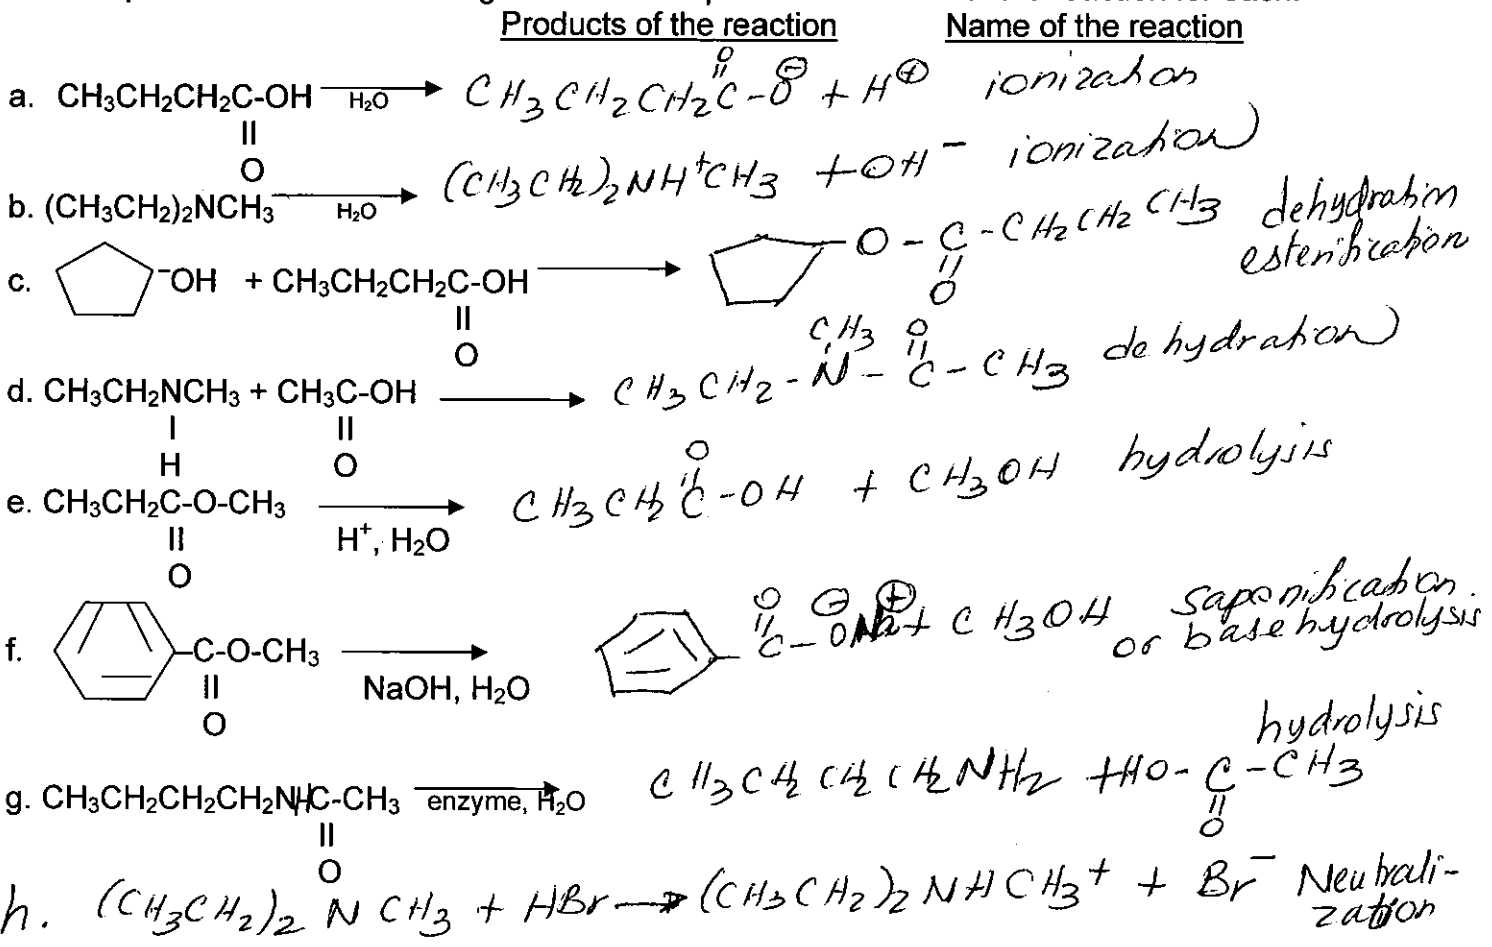 Products of the reaction Name of the reaction
a. CH3CH2CH2C-OH H2O CH3CH2CH2C-O⊖ + H⊕ ionization
|| O
|| O
b. (CH3CH2)2NCH3 H2O (CH3CH2)2NH+CH3 + OH- ionization
c. -OH + CH3CH2CH2C-OH -O-C-CH2CH2CH3 dehydration
esterification
|| O
|| O
d. CH3CH2NCH3 + CH3C-OH CH3CH2-N-C-CH3 dehydration
CH3 O ||
| H || O
e. CH3CH2C-O-CH3 H+, H2O CH3CH2C-OH + CH3OH hydrolysis
|| O
O ||
f. C-O-CH3 NaOH, H2O C-O⊖Na⊕ + CH3OH saponification.
or base hydrolysis
|| O
O ||
g. CH3CH2CH2CH2NHC-CH3 enzyme, H2O CH3CH2CH2CH2NH2 + HO-C-CH3 hydrolysis
|| O
|| O
h. (CH3CH2)2NCH3 + HBr → (CH3CH2)2NHCH3+ + Br- Neutrali-
zation